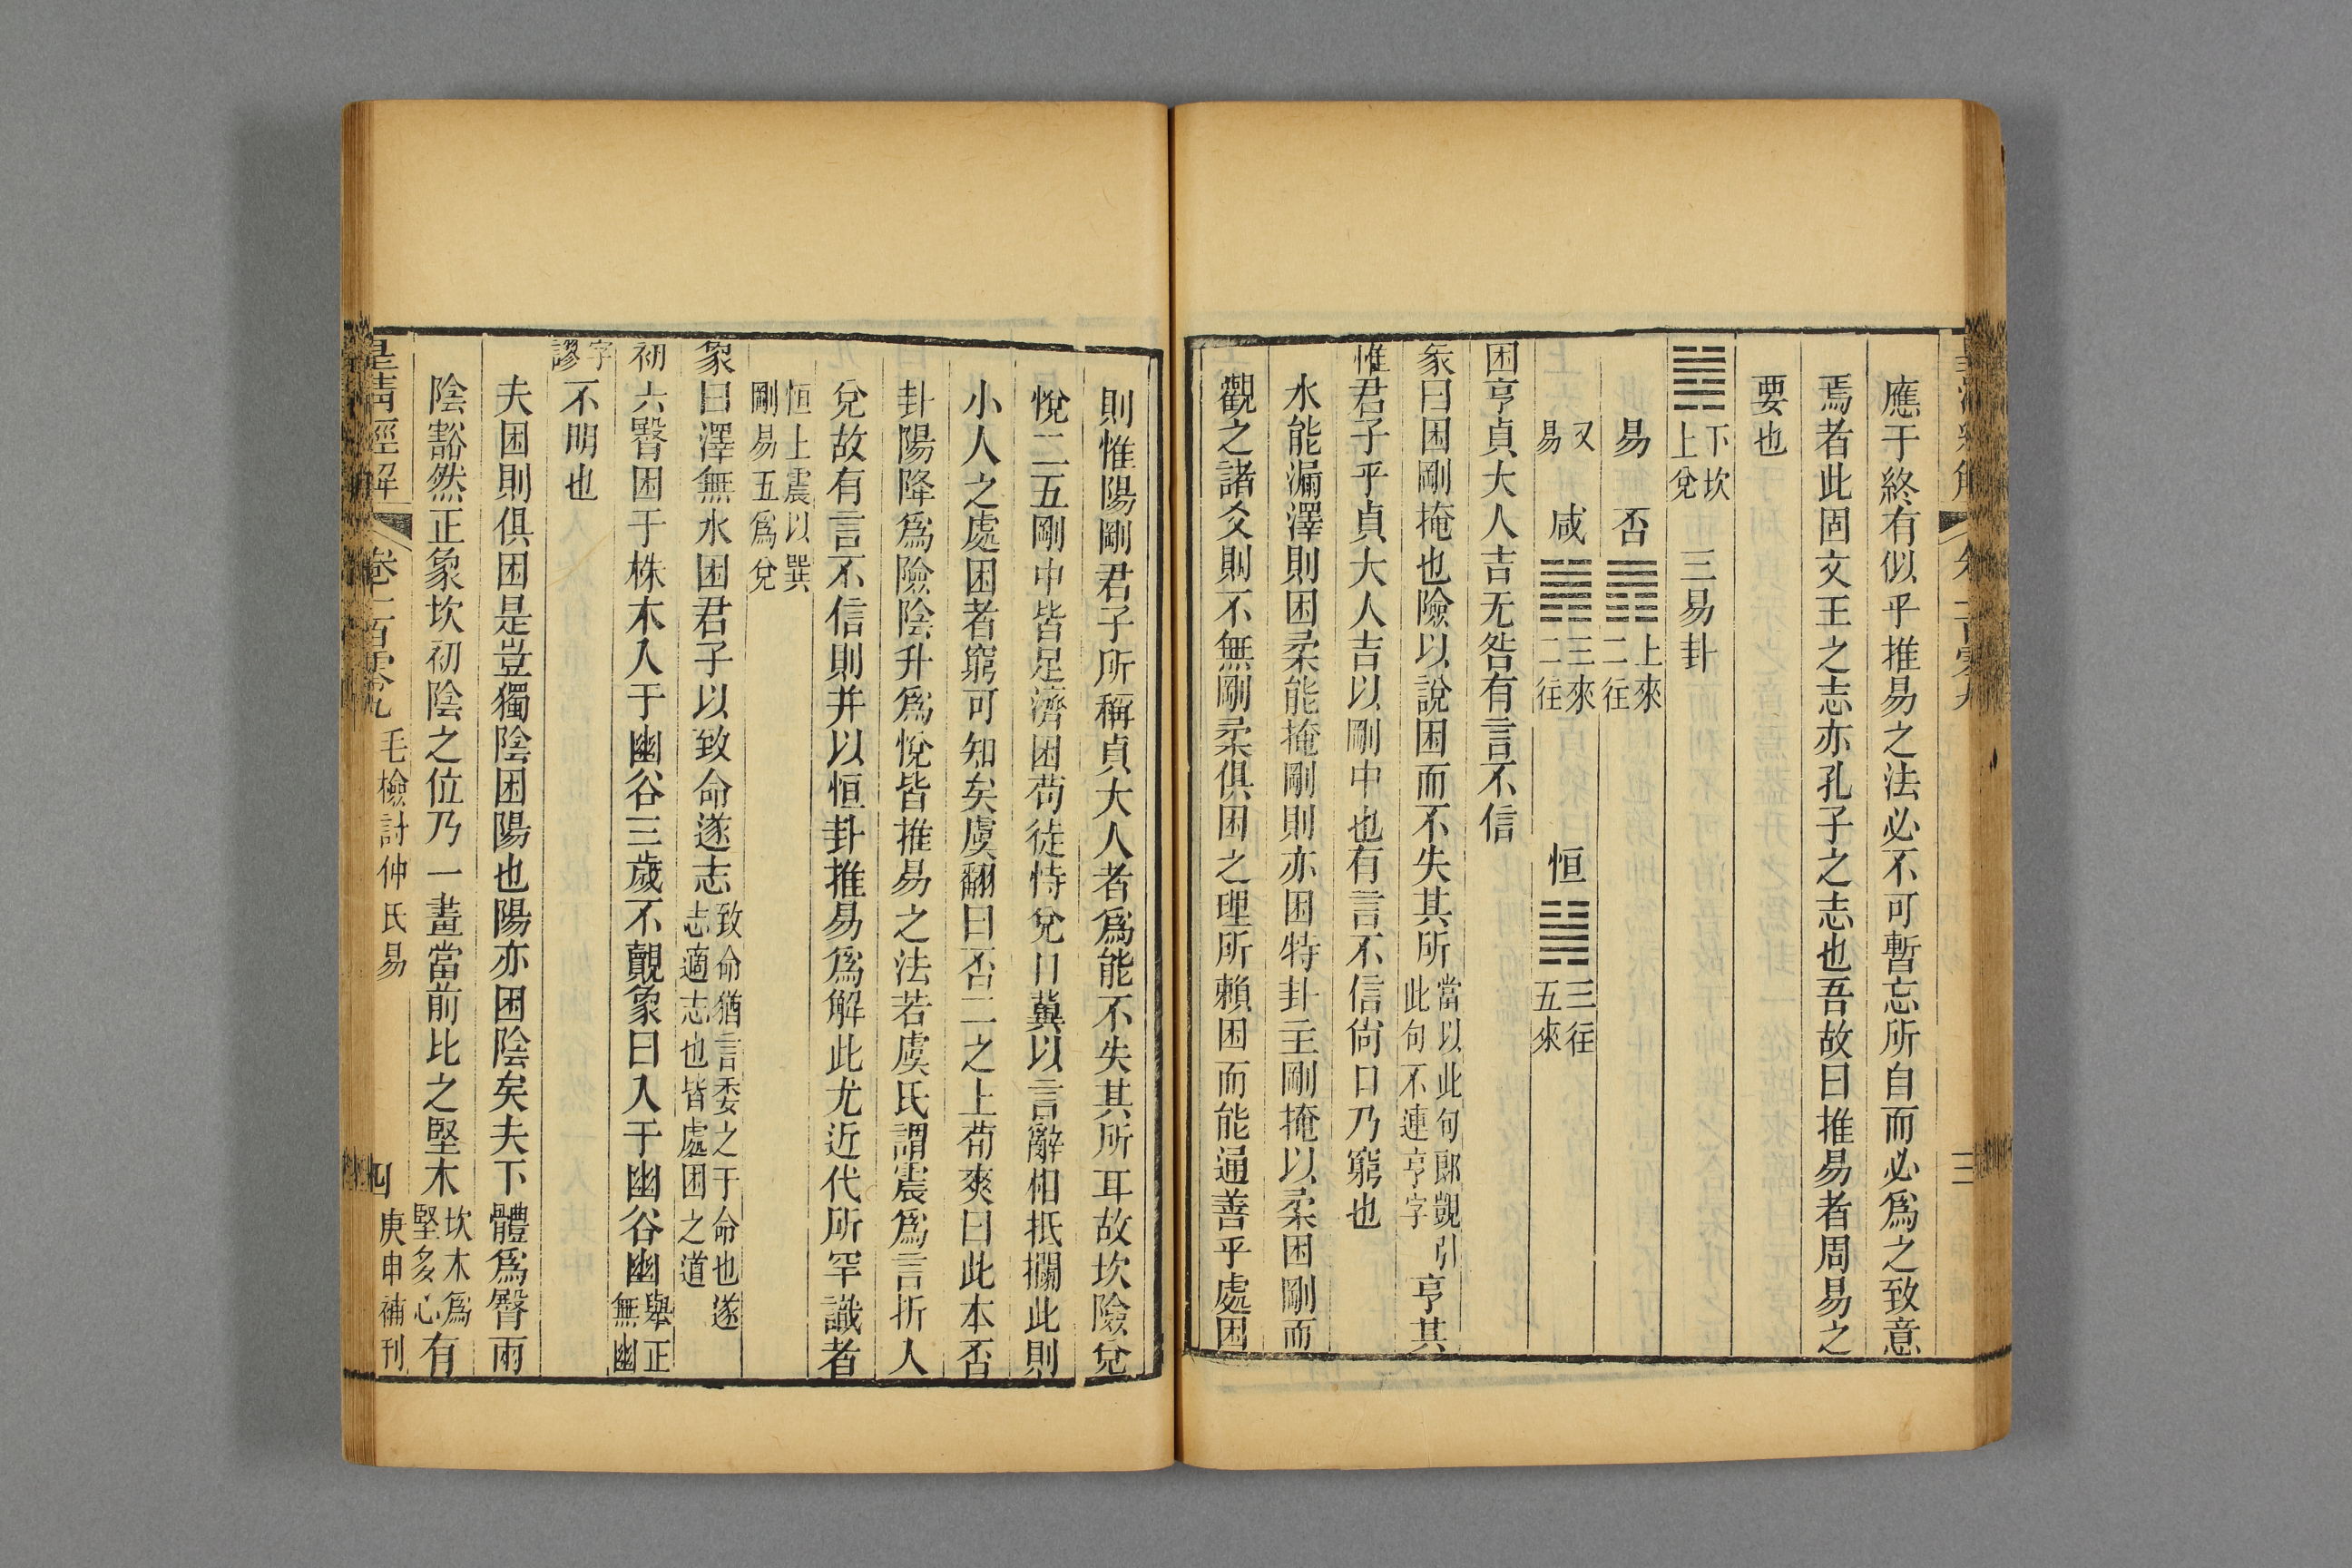 應于終有似乎推易之法必不可暫忘所自而必爲之致意
焉者此固文王之志亦孔子之志也吾故曰推易者周易之
要也
䷮下坎上兌 三易卦
易 否䷋上來二往
又易 咸䷞三來二往 恒䷟三往五來
困亨貞大人吉无咎有言不信
彖曰困剛掩也險以說困而不失其所當以此句郞覬引此句不連亨字亨其
惟君子乎貞大人吉以剛中也有言不信尙口乃窮也
水能漏澤則困柔能掩剛則亦困特卦主剛掩以柔困剛而
觀之諸爻則不無剛柔俱困之理所賴困而能通善乎處困
則惟陽剛君子所稱貞大人者爲能不失其所耳故坎險兌
悅二五剛中皆足濟困苟徒恃兌口冀以言辭相抵攔此則
小人之處困者窮可知矣虞翻曰否二之上荀爽曰此本否
卦陽降爲險陰升爲悅皆推易之法若虞氏謂震爲言折入
兌故有言不信則并以恒卦推易爲解此尤近代所罕識者
恒上震以巽剛易五爲兌
象曰澤無水困君子以致命遂志致命猶言委之于命也遂志適志也皆處困之道
初六臀困于株木入于幽谷三歲不覿象曰入于幽谷幽舉正無幽
字謬不明也
夫困則俱困是豈獨陰困陽也陽亦困陰矣夫下體爲臀兩
陰豁然正象坎初陰之位乃一畫當前比之堅木坎木爲堅多心有
皇淸經解 卷一百零九 毛檢討仲氏易 四 庚申補刊